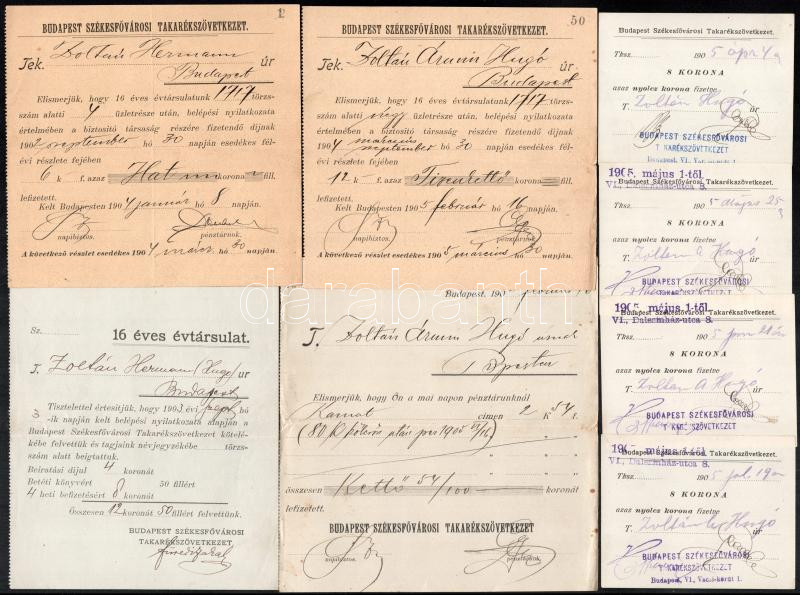 1
BUDAPEST SZÉKESFŐVÁROSI TAKARÉKSZÖVETKEZET.
Tek. Zoltán Hermann úr
Budapest
Elismerjük, hogy 16 éves évtársulatunk 1717 törzs-
szám alatti 4 üzletrésze után, belépési nyilatkozata
értelmében a biztositó társaság részére fizetendő dijnak
190 szeptember hó 30 napján esedékes fél-
évi részlete fejében
6 k. f. azaz Hat korona fill.
lefizetett.
Kelt Budapesten 1904 január hó 8 napján.
napibiztos. pénztárnok.
A következő részlet esedékes 1904 márcz. hó 30 napján.
50
BUDAPEST SZÉKESFŐVÁROSI TAKARÉKSZÖVETKEZET.
Tek. Zoltán Árum Hugó úr
Budapest
Elismerjük, hogy 16 éves évtársulatunk 1717 törzs-
szám alatti négy üzletrésze után, belépési nyilatkozata
értelmében a biztositó társaság részére fizetendő dijnak
1904 március szeptember hó 30 napján esedékes fél-
évi részlete fejében
12 k. f. azaz Tizenkettő korona fill.
lefizetett.
Kelt Budapesten 1905 február hó 16 napján.
napibiztos. pénztárnok.
A következő részlet esedékes 1905 március hó 30 napján.
Sz.
16 éves évtársulat.
T. Zoltán Hermann (Hugo) ur
Budapest
Tisztelettel értesitjük, hogy 1903 évi szept. hó
3-ik napján kelt belépési nyilatkozata alapján a
Budapest Székesfővárosi Takarékszövetkezet kötelé-
kébe felvettük és tagjaink névjegyzékébe törzs-
szám alatt beigtattuk.
Beiratási dijul 4 koronát
Betéti könyvért 50 fillért
4 heti befizetésért 8 koronát
Összesen 12 koronát 50 fillért felvettünk.
BUDAPEST SZÉKESFŐVÁROSI
TAKARÉKSZÖVETKEZET
Budapest, 190
T. Zoltán Árum Hugó úrnak
Bpesten
Elismerjük, hogy Ön a mai napon pénztárunknál
Kamat címen 2 K 54 f.
összesen Kettő 54/100 koronát
lefizetett.
BUDAPEST SZÉKESFŐVÁROSI TAKARÉKSZÖVETKEZET
napibiztos. pénztárnok.
Budapest Székesfővárosi Takarékszövetkezet.
Thsz. 1905 ápr 4
8 KORONA
azaz nyolcz korona fizetve
T. Zoltán Hugó úr
BUDAPEST SZÉKESFŐVÁROSI
TAKARÉKSZÖVETKEZET
Budapest, VI.
1905. május 1-től.
VI., Dalszinház-utca 8.
Budapest Székesfővárosi Takarékszövetkezet.
Thsz. 1905 május 25
8 KORONA
azaz nyolcz korona fizetve
T. Zoltán A Hugó úr
BUDAPEST SZÉKESFŐVÁROSI
TAKARÉKSZÖVETKEZET
1905. május 1-től.
VI., Dalszinház-utca 8.
Thsz. 1905 jun 21én
8 KORONA
azaz nyolcz korona fizetve
T. Zoltán A Hugó úr
BUDAPEST SZÉKESFŐVÁROSI
TAKARÉKSZÖVETKEZET
1905. május 1-től.
Budapest Székesfővárosi Takarékszövetkezet.
VI., Dalszinház-utca 8.
Thsz. 1905 jul 19én
8 KORONA
azaz nyolcz korona fizetve
T. Zoltán A Hugó úr
BUDAPEST SZÉKESFŐVÁROSI
TAKARÉKSZÖVETKEZET
Budapest, VI., Váczi-körút 1.
darabanth